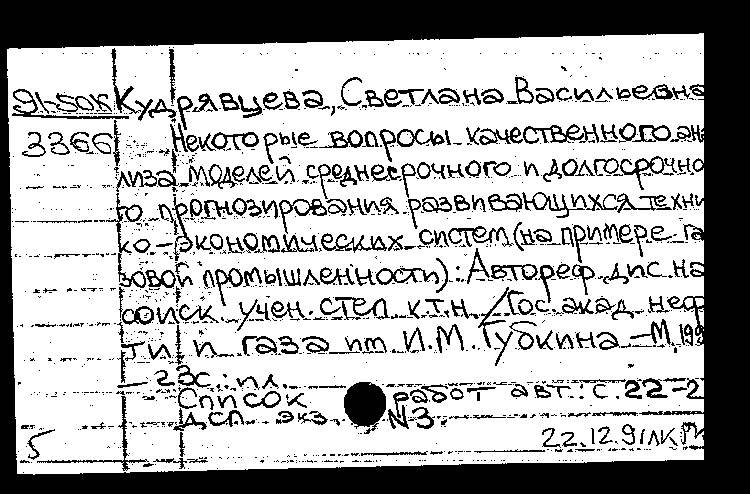 91-50к Кудрявцева, Светлана Васильевна
3366 Некоторые вопросы качественного ана
лиза моделей среднесрочного и долгосрочно
го прогнозирования развивающихся техни
ко-экономических систем (на примере га
зовой промышленности): Автореф. дис на
соиск. учен. степ к.т.н / Гос. акад. неф
ти и газа им И.М. Губкина – М, 199
– 23с.: ил.
Список работ авт.: с. 22-2
ДСП. экз. N3.
5 22.12.91